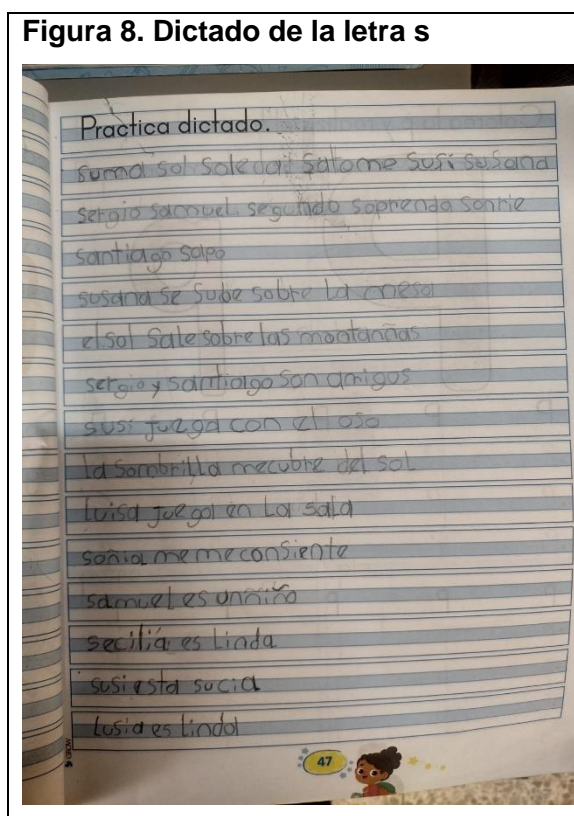 Figura 8. Dictado de la letra s
Practica dictado.
suma sol soledad salome susi susana
sergio samuel segundo soprenda sonrie
santiago sapo
susana se sube sobre la mesa
el sol sale sobre las montanñas
sergio y santiago son amigos
susi juega con el oso
la sombrilla mecubre del sol
luisa juega en la sala
soñia me meconsiente
samuel es unniño
secilia es linda
susi esta sucia
lusia es linda
47